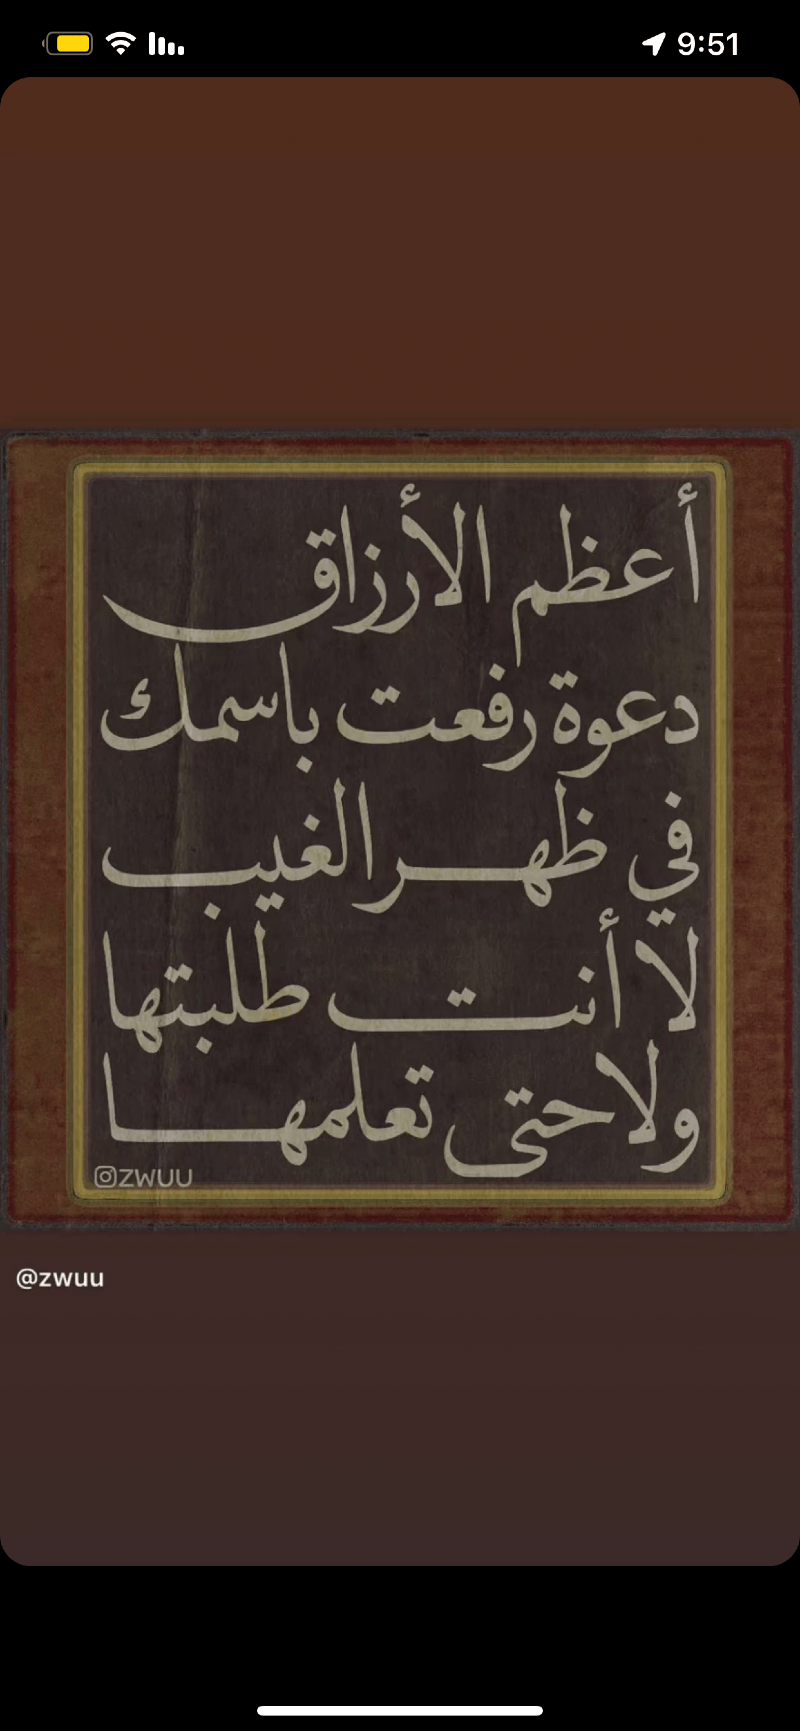 9:51
أعظم الأرزاق
دعوة رفعت باسمك
في ظهر الغيب
لا أنت طلبتها
ولا حتى تعلمها
ZWUU
@zwuu